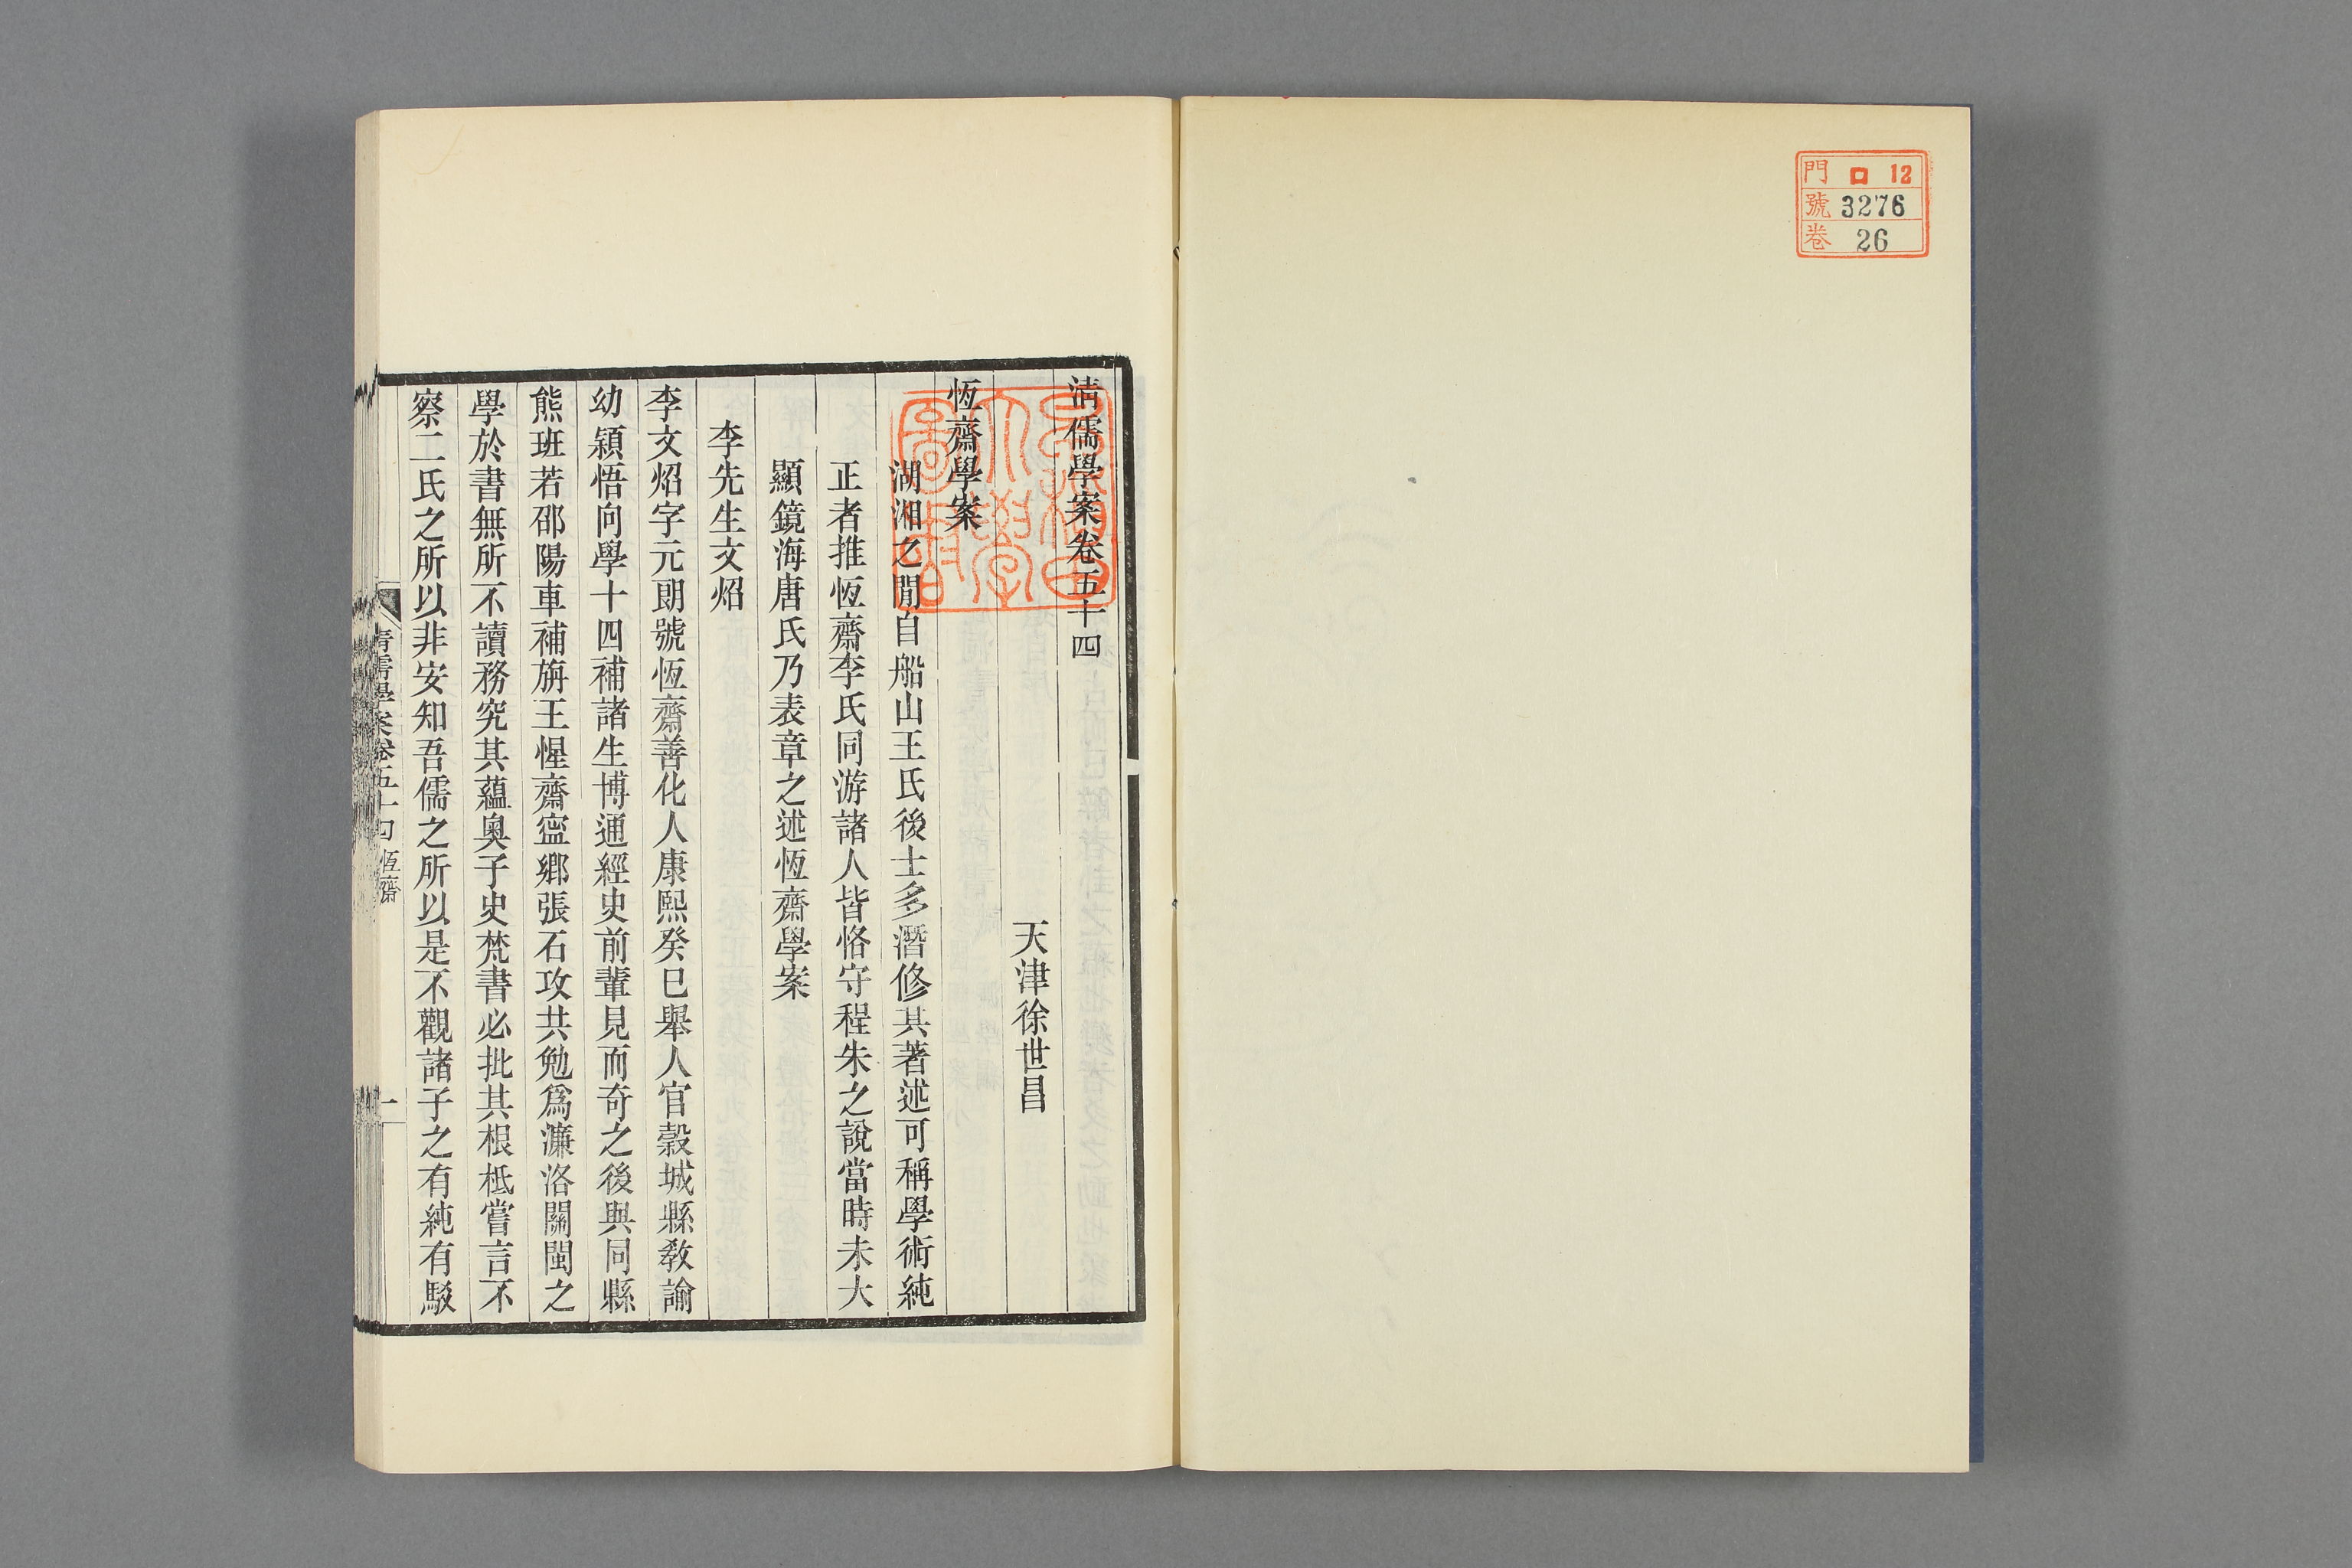 門 口 12
號 3276
卷 26
清儒學案卷五十四
天津徐世昌
恆齋學案
湖湘之閒自船山王氏後士多潛修其著述可稱學術純
正者推恆齋李氏同游諸人皆恪守程朱之說當時未大
顯鏡海唐氏乃表章之述恆齋學案
李先生文炤
李文炤字元朗號恆齋善化人康熙癸巳舉人官穀城縣敎諭
幼穎悟向學十四補諸生博通經史前輩見而奇之後與同縣
熊班若邵陽車補旃王惺齋寧鄉張石攻共勉爲濂洛關閩之
學於書無所不讀務究其蘊奧子史梵書必批其根柢嘗言不
察二氏之所以非安知吾儒之所以是不觀諸子之有純有駁
清儒學案卷五十四 恆齋 一